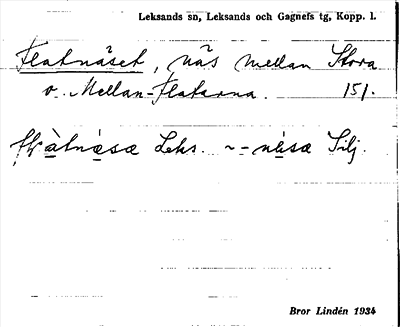 Leksands sn, Leksands och Gagnefs tg, Kopp. l.
Flatnäset, näs mellan Stora
o. Mellan-Flatarna. 151.
Leks. ~-nèsæ Silj.
Bror Lindén 1934